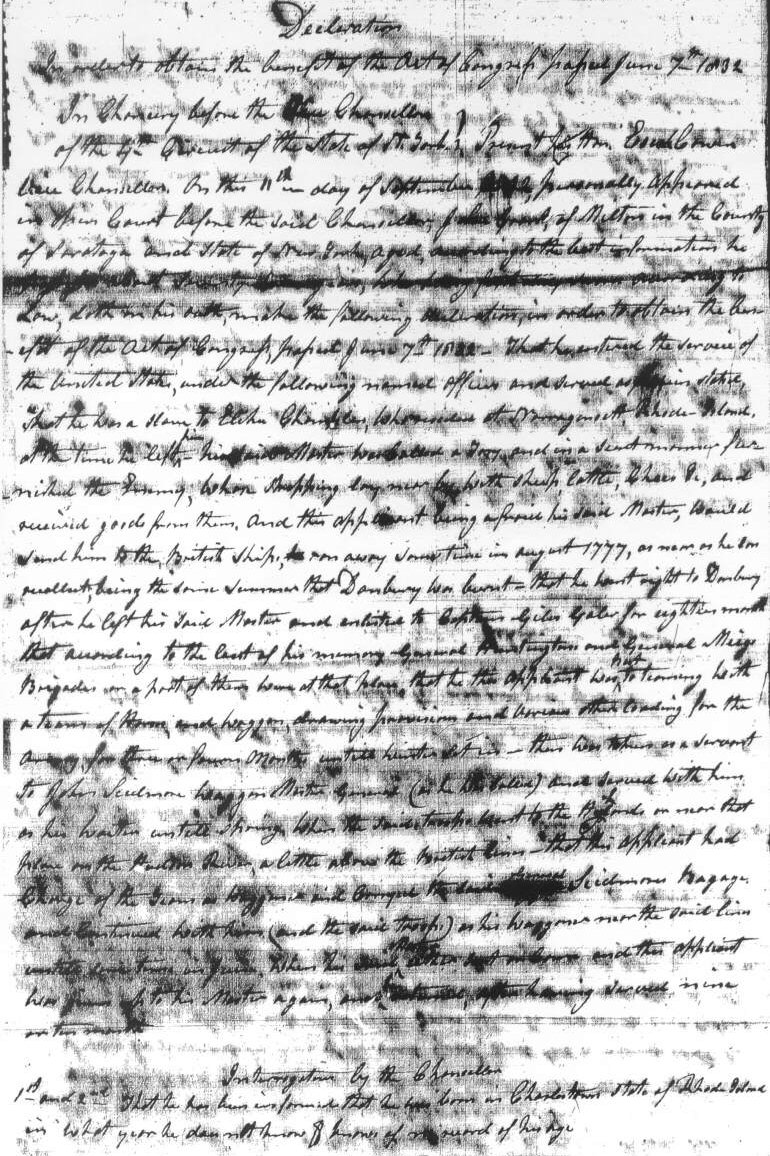 Declaration
In order to obtain the benefit of the Act of Congress passed June 7th 1832
In Chancery before the Vice Chancellor
of the 4th Circuit of the State of N. York, Present Hon. Esek Cowen
Vice Chancellor. On this 11th day of September personally Appeared
in Open Court before the said Chancellor, of Milton in the County
of Saratoga and State of New York, aged, according to the best information he
about Seventy years, who being according to
Law, doth on his oath, make the following declaration, in order to obtain the ben-
-efit of the Act of Congress, passed June 7th 1832 - That he entered the service of
the United States, under the following named officers and served as herein stated,
That he was a slave to Elihu who resided at Narragansett, Rhode-Island,
at the time he left him his said Master was called a Tory, and in a secret manner fur-
-nished the Enemy, whose Shipping lay near by with Sheep, Cattle, Chees &c, and
received goods from them. And this applicant being afraid his said Master, would
send him to the British Ships, ran away sometime in august 1777, as near as he can
recollect, being the same summer that Danbury was burnt - that he went right to Danbury
after he left his said Master and enlisted to Captain Giles for eighteen months
that according to the best of his memory General Huntington and General Meigs
Brigades or a part of them were at that place, that he this Applicant was put to teaming with
a team of Horses and waggon, drawing provisions and various other loading for the
Army for three or four Months until winter set in - then was taken as a servant
to John Waggon Master General (as he was called) and served with him
as his waiter until Spring when the said troops went to the or near that
place on the Hudson River, a little above the British lines - that this applicant had
Charge of the Team as Waggoner and the said Bagage
and continued with him (and the said troops) as his Waggoner near the said lines
until some time in June, when his Master and this applicant
was given up to his Master again, and he after having served nine
or ten months
Interrogatories by the Chancellor
1st and 2nd That he has been informed that he was born in Charlestown State of Rhode Island
in what year he does not know & knows of no record of his age